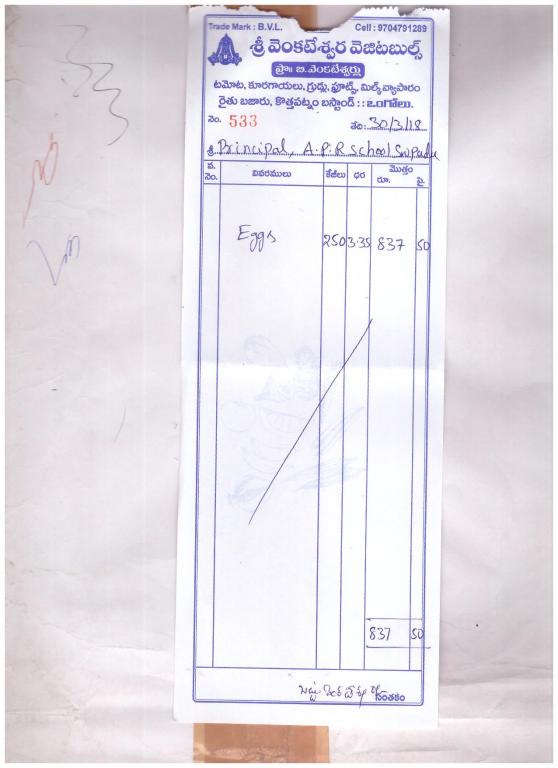 Trade Mark : B.V.L. Cell : 9704791289
శ్రీ వెంకటేశ్వర వెజిటబుల్స్
ప్రొ॥ బి.వెంకటేశ్వర్లు
టమోట, కూరగాయలు, గ్రుడ్లు, ఫ్రూట్స్, మిల్క్ వ్యాపారం
రైతు బజారు, కొత్తపట్నం బస్టాండ్ : : ఒంగోలు.
నెం. 533 తేది: 30/3/18
శ్రీ Principal, A.P.R School
వ. నెం. వివరములు కేజీలు ధర మొత్తం రూ. పై.
Eggs 250 3.35 837 50
837 50
సంతకం